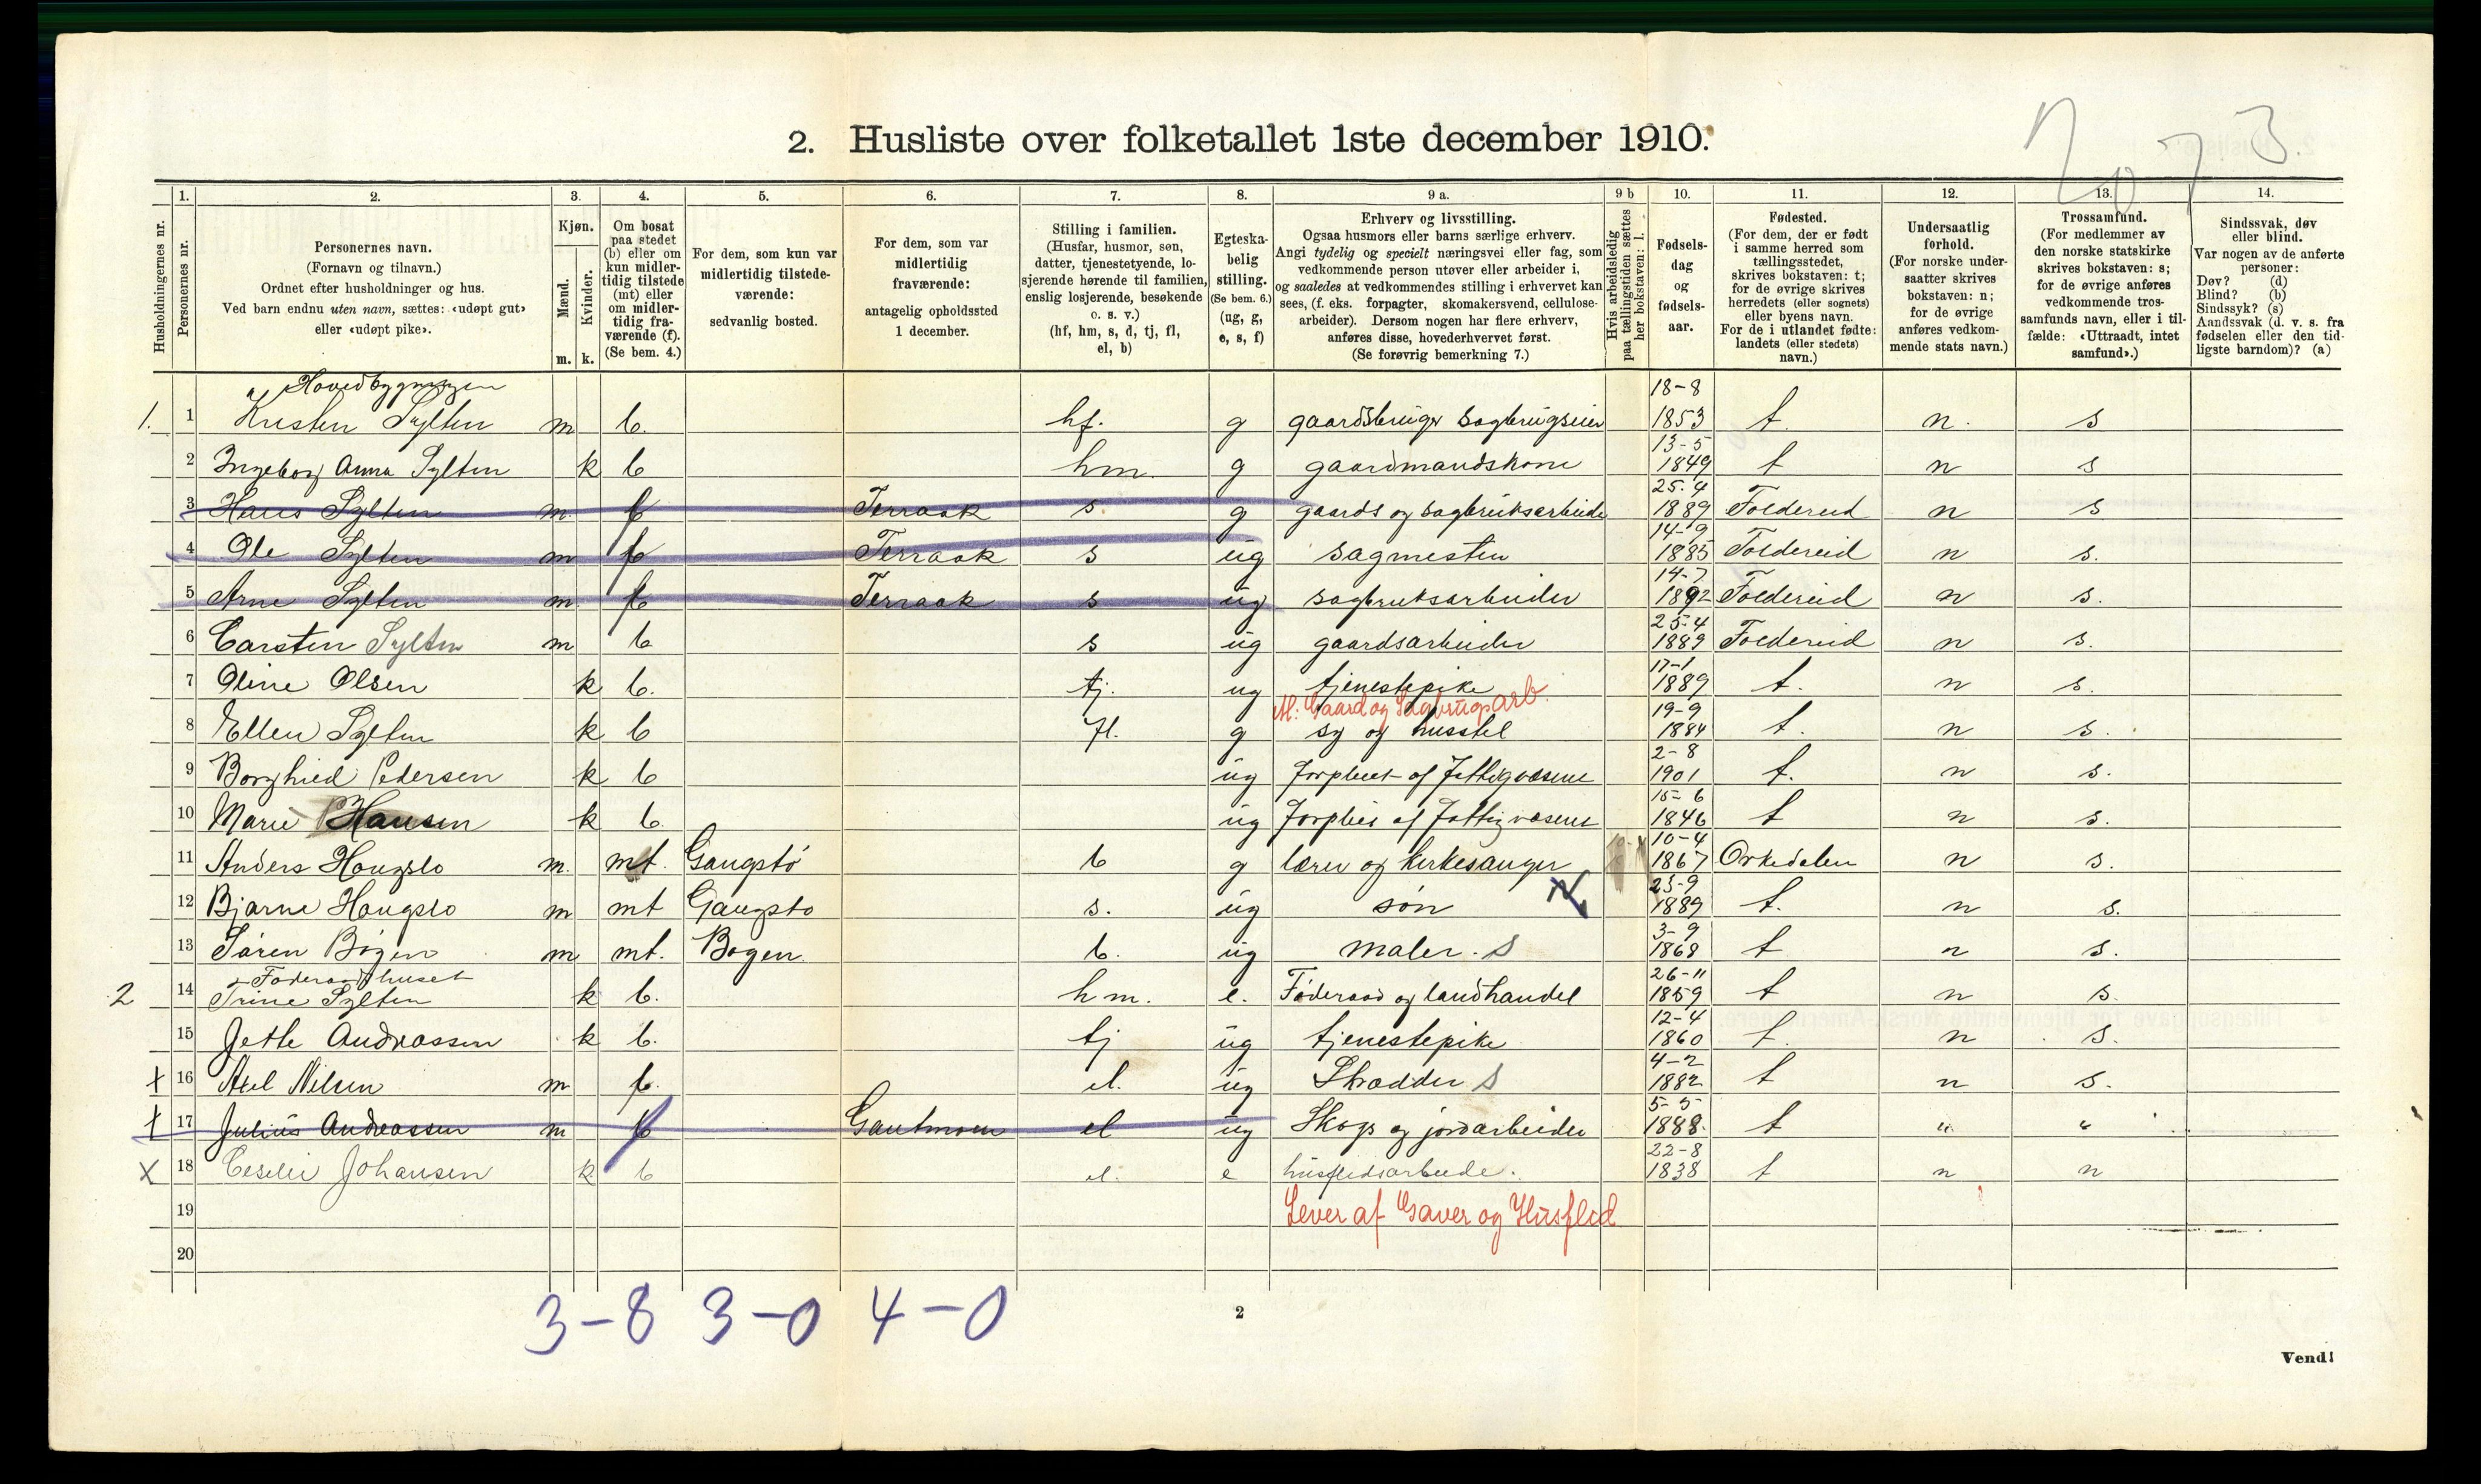 2. Husliste over folketallet 1ste december 1910.
Husholdningernes nr.
1. Personernes nr.
2. Personernes navn. (Fornavn og tilnavn.) Ordnet efter husholdninger og hus. Ved barn endnu uten navn, sættes: «udøpt gut» eller «udøpt pike».
3. Kjøn. Mænd. m. Kvinder. k.
4. Om bosat paa stedet (b) eller om kun midlertidig tilstede (mt) eller om midlertidig fraværende (f). (Se bem. 4.)
5. For dem, som kun var midlertidig tilstedeværende: sedvanlig bosted.
6. For dem, som var midlertidig fraværende: antagelig opholdssted 1 december.
7. Stilling i familien. (Husfar, husmor, søn, datter, tjenestetyende, losjerende hørende til familien, enslig losjerende, besøkende o. s. v.) (hf, hm, s, d, tj, fl, el, b)
8. Egteskabelig stilling. (Se bem. 6.) (ug, g, e, s, f)
9 a. Erhverv og livsstilling. Ogsaa husmors eller barns særlige erhverv. Angi tydelig og specielt næringsvei eller fag, som vedkommende person utøver eller arbeider i, og saaledes at vedkommendes stilling i erhvervet kan sees, (f. eks. forpagter, skomakersvend, cellulosearbeider). Dersom nogen har flere erhverv, anføres disse, hovederhvervet først. (Se forøvrig bemerkning 7.)
9 b Hvis arbeidsledig paa tællingstiden sættes her bokstaven: l.
10. Fødselsdag og fødselsaar.
11. Fødested. (For dem, der er født i samme herred som tællingsstedet, skrives bokstaven: t; for de øvrige skrives herredets (eller sognets) eller byens navn. For de i utlandet fødte: landets (eller stedets) navn.)
12. Undersaatlig forhold. (For norske undersaatter skrives bokstaven: n; for de øvrige anføres vedkommende stats navn.)
13. Trossamfund. (For medlemmer av den norske statskirke skrives bokstaven: s; for de øvrige anføres vedkommende trossamfunds navn, eller i tilfælde: «Uttraadt, intet samfund».)
14. Sindssvak, døv eller blind. Var nogen av de anførte personer: Døv? (d) Blind? (b) Sindssyk? (s) Aandssvak (d. v. s. fra fødselen eller den tidligste barndom)? (a)
Hovedbygningen
1. 1 Kristen Sylten m b. hf. g gaardsbruger Sagbrugseier 18-8 1853 t. n. s
2 Ingeborg Anna Sylten k b hm. g gaardmandskone 13-5 1849 t n s
3 Hans Sylten m. f Terraak s g gaards og sagbruksarbeide 25-4 1889 Foldereid n s
4 Ole Sylten m f Terraak s ug sagmester 14-9 1885 Foldereid n s.
5 Arne Sylten m. f Terraak s ug sagbruksarbeider 14-7 1892 Foldereid n s.
6 Carsten Sylten m b s ug gaardsarbeider 25-4 1889 Foldereid n s.
7 Oline Olsen k b. tj. ug tjenestepike 17-1 1889 t. n s.
M: Gaard og Sagbrugsarb.
8 Ellen Sylten k b fl. g sy og husstel 19-9 1884 t. n s.
9 Borghild Pedersen k b ug Forpleiet af Fattigvæsenet 2-8 1901 t. n s.
10 Marie Hansen k b. ug Forpleies af Fattigvæsenet 15-6 1846 t n s.
11 Anders Hougslo m. mt. Gangstø b g lærer og kirkesanger 10-4 1867 Orkedalen n s.
12 Bjarne Hougslo m mt Gangsto s. ug søn 23-9 1889 t. n s.
13 Sören Bögen m mt. Bogen b. ug maler. S 3-9 1868 t n s.
Føderaadshuset
2 14 Trine Sylten k b. hm. e. Føderaad og landhandel 26-11 1859 t n s.
15 Jette Andreassen k b. tj ug tjenestepike 12-4 1860 t. n s.
16 Axel Nilsen m f. el. ug Skrædder S 4-2 1882 t n s.
17 Julius Andreassen m f Gautmoen el ug Skogs og jordarbeider 5-5 1888. t " "
x 18 Ceselie Johansen k b el. e husflidsarbeide. 22-8 1838 t n n
19 Lever af Gaver og Husflid
20
3-8 3-0 4-0
2
Vend!